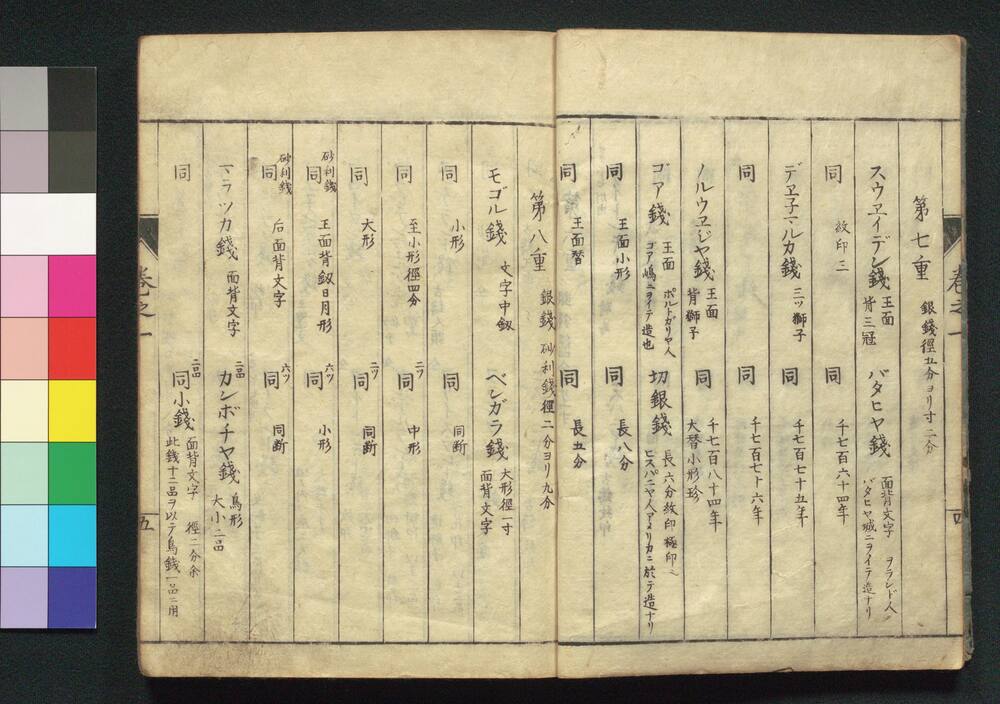 第七重　銀錢徑五分ヨリ寸二分
スウヱイデン錢　王面　背三冠
バタヒヤ錢　面背文字　ヲランド人バタヒヤ城ニヲイテ造ナリ
同　放印三
同　千七百六十四年
デヱ子マルカ錢　三ツ獅子
同　千七百七十五年
同
同　千七百七十六年
ノルウヱジヤ錢　王面　背獅子
同　千七百八十四年　大替小形珍
ゴア錢　王面　ポルトガリヤ人ゴア嶋ニヲイテ造也
切銀錢　長六分放印極印ニ　ヒスパニヤ人アメリカニ於テ造ナリ
同　王面小形
同　長八分
同　王面替
同　長五分
巻之一　四
第八重　銀錢　砂利錢徑二分ヨリ九分
モゴル錢　文字中釼
ベンガラ錢　大形徑一寸　面背文字
同　小形
同　同断
同　至小形徑四分
二ツ　同　中形
同　大形
二ツ　同　同断
砂利錢　同　王面背釼日月形
六ツ　同　小形
砂利錢　同　后面背文字
六ツ　同　同断
マラツカ錢　面背文字
二品　カンボチヤ錢　鳥形　大小二品
同
二品　同小錢　面背文字　徑二分余　此錢十二品ヲ以テ鳥錢一品ニ用
巻之一　五